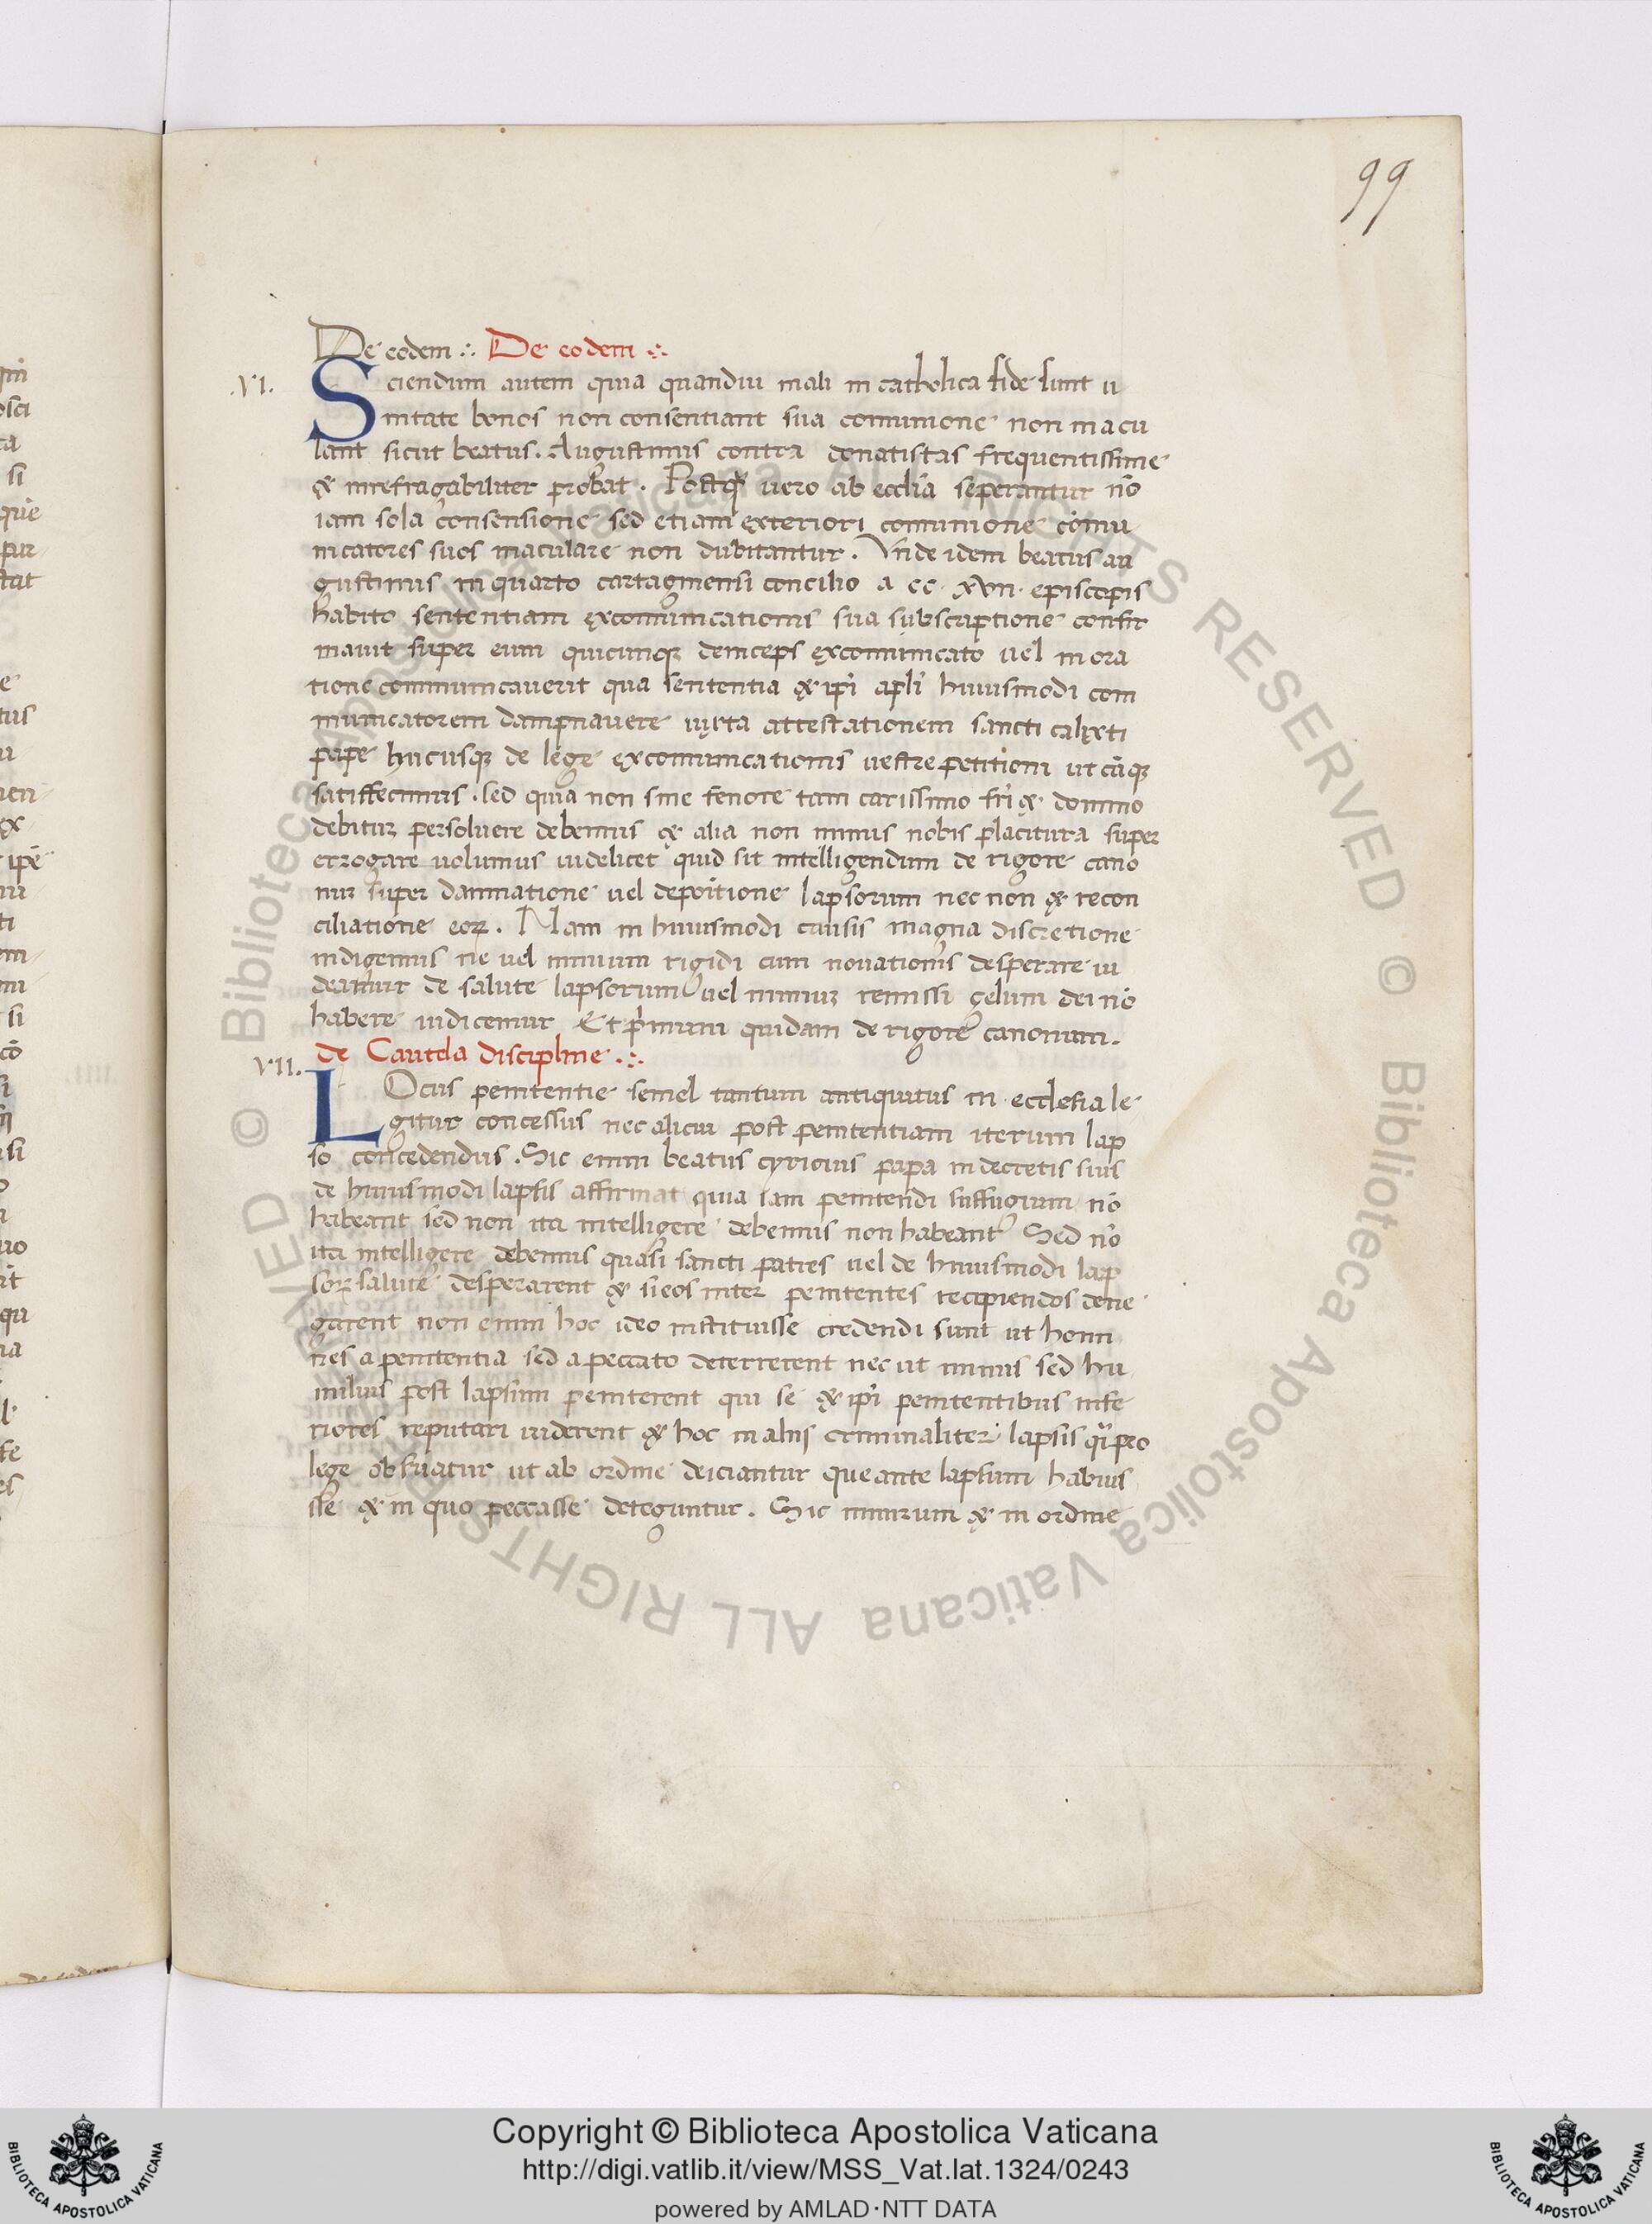 99
De eodem ∴ De eodem ∴
.VI. Sciendum autem quia quandiu mali in catholica fide sunt u
nitate bonos non consentiant sua comunione non macu
lant sicut beatus. Augustinus contra donatistas frequentissime
& inrefragabiliter probat. Postqꝫ uero ab ecclīa seperantur nō
iam sola consensione sed etiam exteriori comunione cōmu
nicatores suos maculare non dubitantur. Vnde idem beatus au
gustinus in quarto cartaginensi concilio a cc. xvii. episcopis
habito sententiam excomunicationis sua subscriptione confir
mauit super eum quicunqꝫ deinceps excomunicato uel in ora
tione communicauerit qua sententia & ip̄i apl̄i huiusmodi com
municatorem dampnauere iuxta attestationem sancti calixti
pape hucusqꝫ de lege excomunicationis uestre petitioni utcūqꝫ
satiffecimus. sed quia non sine fenore tam carissimo fr̄i & domino
debituꝫ persoluere debemus & alia non minus nobis placitura super
errogare uolumus uidelicet quid sit intelligendum de rigore cano
nuꝫ super damnatione uel depoitione lapsorum nec non & recon
ciliatione eoꝝ. Nam in huiusmodi causis magna discretione
indigemus ne uel nimium rigidi cum nouationis desperare ui
deamur de salute lapsorum uel nimiuꝫ remissi çelum dei nō
habere iudicemur Et p̄mum quidam de rigore canonum.
de Cautela discipline. ∴
VII. LOcus penitentie semel tantum antiquitus in ecclesia le
gitur concessus nec alicui post penitentiam iterum lap
so concedendus. Sic enim beatus cyricius papa in decretis suis
de huiusmodi lapsis affirmat quia iam penitendi suffugium nō
habeant sed non ita intelligere debemus non habeant Sed nō
ita intelligere debemus quasi sancti patres uel de huiusmodi lap
soꝝ salute desperarent & si eos inter penitentes recipiendos dene
garent non enim hoc ideo instituisse credendi sunt ut homi
nes a penitentia sed a peccato deterrerent nec ut minus sed hu
milius post lapsum peniterent qui se & ip̄i penitentibus infe
riores reputari uiderent & hoc in aliis criminaliter lapsis pro
lege obs̄uatur ut ab ordine deiciantur que ante lapsum habuis
se & in quo peccasse deteguntur. Sic nimirum & in ordine
Copyright © Biblioteca Apostolica Vaticana
http://digi.vatlib.it/view/MSS_Vat.lat.1324/0243
powered by AMLAD·NTT DATA
BIBLIOTECA APOSTOLICA VATICANA
BIBLIOTECA APOSTOLICA VATICANA
© Biblioteca Apostolica Vaticana ALL RIGHTS RESERVED © Biblioteca Apostolica Vaticana ALL RIGHTS RESERVED